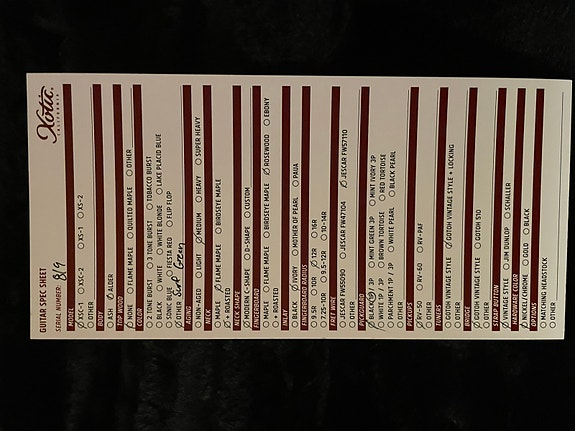 GUITAR SPEC SHEET
Xotic
CALIFORNIA
SERIAL NUMBER: 819
MODEL
XSC-1 XSC-2 XS-1 XS-2
OTHER
BODY
ASH ALDER
TOP WOOD
NONE FLAME MAPLE QUILTED MAPLE OTHER
COLOR
2 TONE BURST 3 TONE BURST TOBACCO BURST
BLACK WHITE WHITE BLONDE LAKE PLACID BLUE
SONIC BLUE FIESTA RED FLIP FLOP
OTHER Surf Green
AGING
NON-AGED LIGHT MEDIUM HEAVY SUPER HEAVY
NECK
MAPLE FLAME MAPLE BIRDSEYE MAPLE
+ ROASTED
NECK SHAPE
MODERN C-SHAPE D-SHAPE CUSTOM
FINGERBOARD
MAPLE FLAME MAPLE BIRDSEYE MAPLE ROSEWOOD EBONY
+ ROASTED
INLAY
BLACK IVORY MOTHER OF PEARL PAUA
FINGERBOARD RADIUS
9.5R 10R 12R 16R
7.25-10R 9.5-12R 10-14R
FRET WIRE
JESCAR FW55090 JESCAR FW47104 JESCAR FW57110
OTHER
PICKGUARD
BLACK 1P / 3P MINT GREEN 3P MINT IVORY 3P
WHITE 1P / 3P BROWN TORTOISE RED TORTOISE
PARCHMENT 1P / 3P WHITE PEARL BLACK PEARL
PICKUPS
RV-50 RV-60 RV-PAF
OTHER
TUNERS
GOTOH VINTAGE STYLE GOTOH VINTAGE STYLE + LOCKING
OTHER
BRIDGE
GOTOH VINTAGE STYLE GOTOH 510
OTHER
STRAP BUTTON
VINTAGE STYLE JIM DUNLOP SCHALLER
HARDWARE COLOR
NICKEL/CHROME GOLD BLACK
OPTIONS
MATCHING HEADSTOCK
OTHER